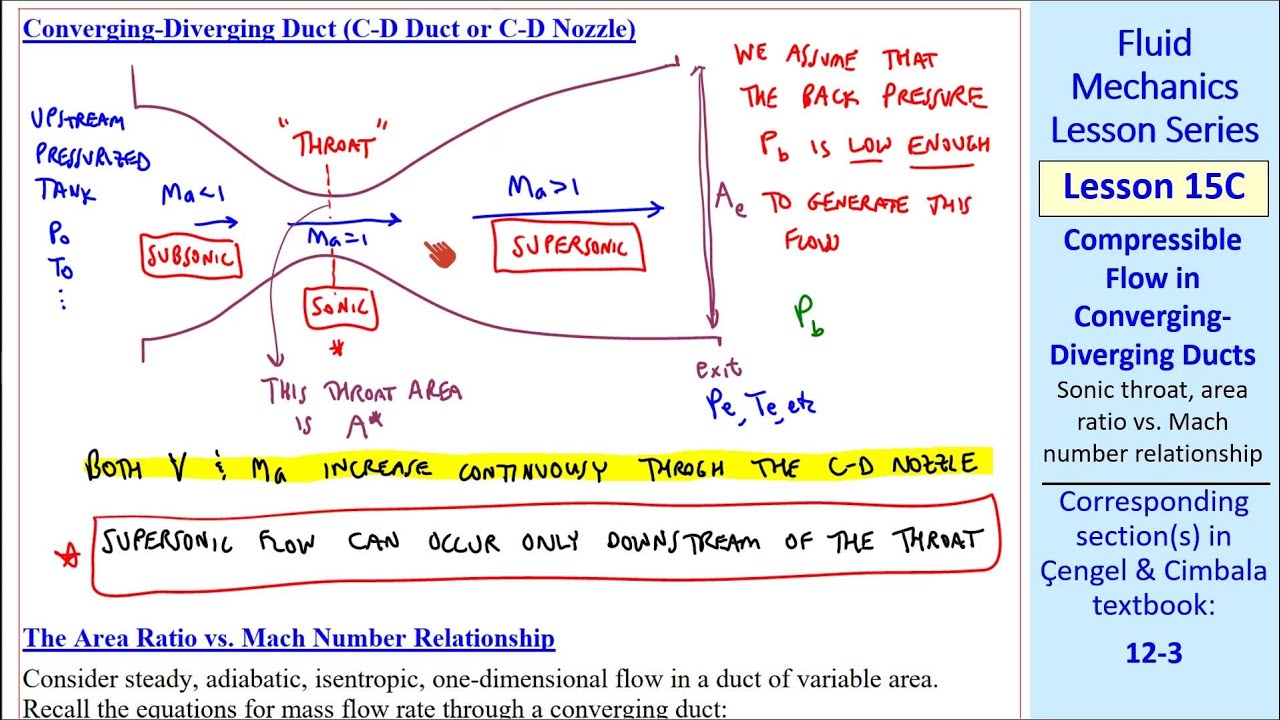 Converging-Diverging Duct (C-D Duct or C-D Nozzle)
UPSTREAM
PRESSURIZED
TANK
Po
To
⋮
Ma<1
SUBSONIC
"THROAT"
Ma=1
SONIC
*
THIS THROAT AREA
IS A*
Ma>1
SUPERSONIC
Ae
exit
Pe, Te, etc
WE ASSUME THAT
THE BACK PRESSURE
Pb IS LOW ENOUGH
TO GENERATE THIS
FLOW
Pb
BOTH V & Ma INCREASE CONTINUOUSY THROGH THE C-D NOZZLE
SUPERSONIC FLOW CAN OCCUR ONLY DOWNSTREAM OF THE THROAT
The Area Ratio vs. Mach Number Relationship
Consider steady, adiabatic, isentropic, one-dimensional flow in a duct of variable area.
Recall the equations for mass flow rate through a converging duct:
Fluid
Mechanics
Lesson Series
Lesson 15C
Compressible
Flow in
Converging-
Diverging Ducts
Sonic throat, area
ratio vs. Mach
number relationship
Corresponding
section(s) in
Çengel & Cimbala
textbook:
12-3